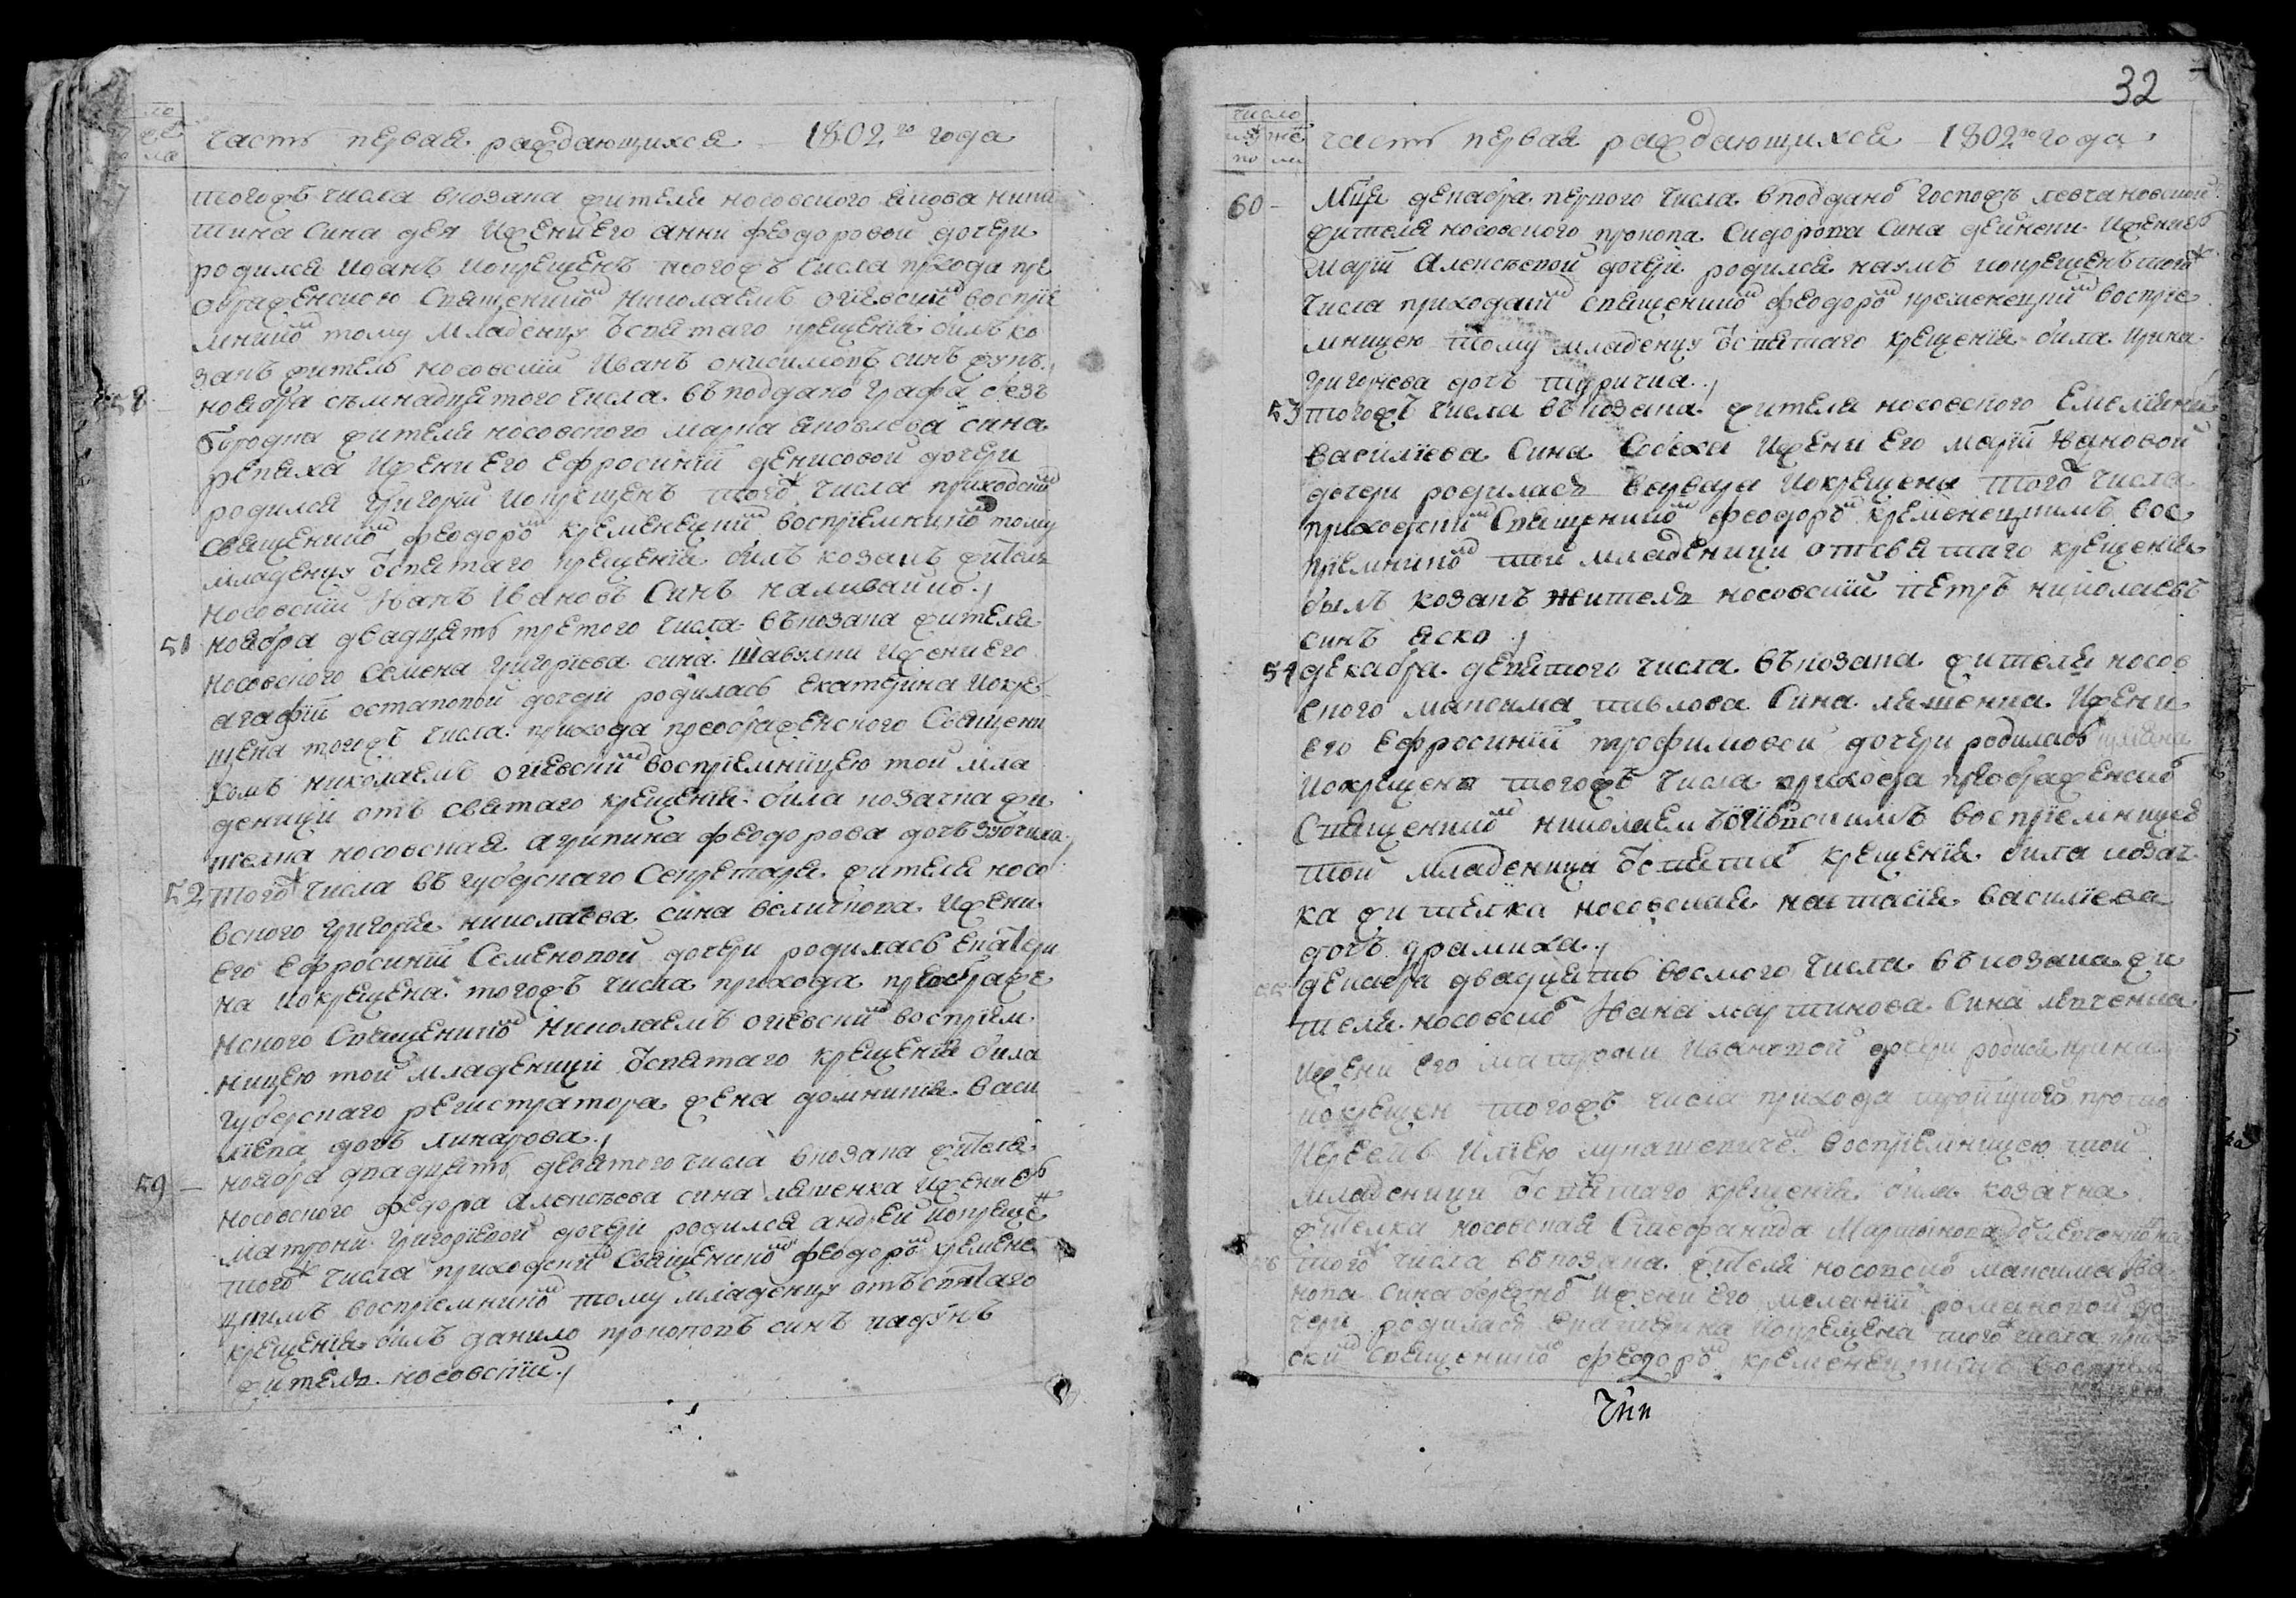 часть первая раждающихся 1802го года
57 тогожъ числа вкозака жителя носовского якова ники
тина сина дея ижени его анни феодоровой дочери
родился иоанъ икрещенъ тогожъ числа прихода пре
ображенского священикомъ николаемъ огіевскимъ воспріе
мникомъ тому младенцу ѿсвятаго крещенія билъ ко
закъ житель носовскій иванъ онисимовъ синъ
58 ноября съмнадцятого числа въподдано графа безъ
бородка жителя носовского марка яковлева сина
репяха ижени его ефросиніи денисовой дочери
родился григорій икрещенъ того ж числа приходскимъ
священикомъ феодоромъ кременецкимъ воспріемникомъ тому
младенцу ѿсвятаго крещенія билъ козакъ житель
носовскій иванъ ивановъ синъ наливайко
51 ноября двадцять третого числа въкозака жителя
носовского семена григоріева сина шавулки ижени его
агафіи остаповой дочери родилась екатерина икре
щена тогожъ числа прихода преображенского священи
комъ николаемъ огіевскимъ воспріемницею той мла
деници отъ святаго крещенія била козачка жи
телка носовская агрипина феодорова дочъ
52 того ж числа въгуберскаго секретаря жителя носо
вского григорія николаева сина величкова ижени
его ефросиніи семеновой дочери родилась екатери
на икрещена тогожъ числа прихода преображе
нского священикомъ николаемъ огіевскимъ воспріем
ницею той младеници ѿсвятаго крещенія била
губерскаго регистратора жена домникія васи
лієва дочъ макарова
59 ноября двадцять девятого числа вкозака жителя
носовского федора алексѣева сина ляшенка ижени его
матрони григорієвой дочери родился андрей икрещенъ
того ж числа приходскимъ священикомъ феодоромъ кремене
цкимъ воспріемникомъ тому младенцу отъсвятаго
крещенія билъ данило прокоповъ синъ кадунъ
житель носовскій
32
число
мужеска женска
по ла
часть первая раждающихся 1802го года
60 Мца декабра первого числа вподдано госпожъ левчановской
жителя носовского прокопа сидорова сина дейнеки ижени его
маріи алексѣевой дочери родился наумъ икрещенъ того ж
числа приходскимъ священикомъ феодоромъ кременецкимъ воспріе
мницею тому младенцу ѿсвятаго крещенія била ирина
григоріева дочъ
53 тогожъ числа въкозака жителя носовского емеліяна
василієва сина собеха ижени его маріи ивановой
дочери родилась варвара икрещена того ж числа
приходскимъ священикомъ феодоромъ кременецкимъ вос
пріемникомъ той младеници отсвятаго крещенія
былъ козакъ житель носовскій петръ николаевъ
синъ яско
54 декабра девятого числа въкозака жителя носов
ского максима павлова сина ляшенка ижени
его ефросиніи трофимовой дочери родилась уляна
икрещена тогожъ числа прихода преображенского
священикомъ николаемъ огіевскимъ воспріемницею
той младеници ѿсвятаго крещенія била козач
ка жителка носовская настасія василієва
дочъ храмиха
55 декабра двадцять восмого числа въкозака жи
теля носовского ивана мартинова сина левченка
ижени его матрони ивановой дочери родилась ирина
икрещена тогожъ числа прихода троицкого прото
иереемъ иліею лукашевичемъ воспріемницею той
младеници ѿсвятаго крещенія била козачка
жителка носовская стефанида мартинова
56 того ж числа въкозака жителя носовского максима ива
нова сина ижени его меланіи романовой до
чери родилась екатерина икрещена того ж числа приход
скимъ священикомъ феодоромъ кременецкимъ воспріем
ницею